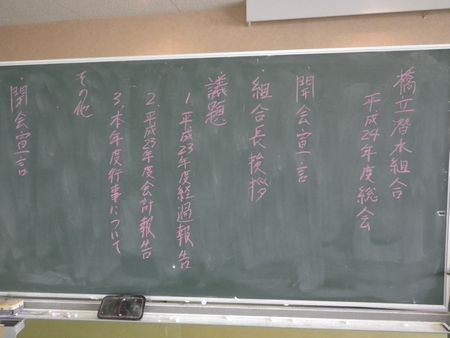 橋立潜水組合
平成24年度総会
開会宣言
組合長挨拶
議題
1. 平成23年度経過報告
2. 平成23年度会計報告
3. 本年度行事について
その他
閉会宣言